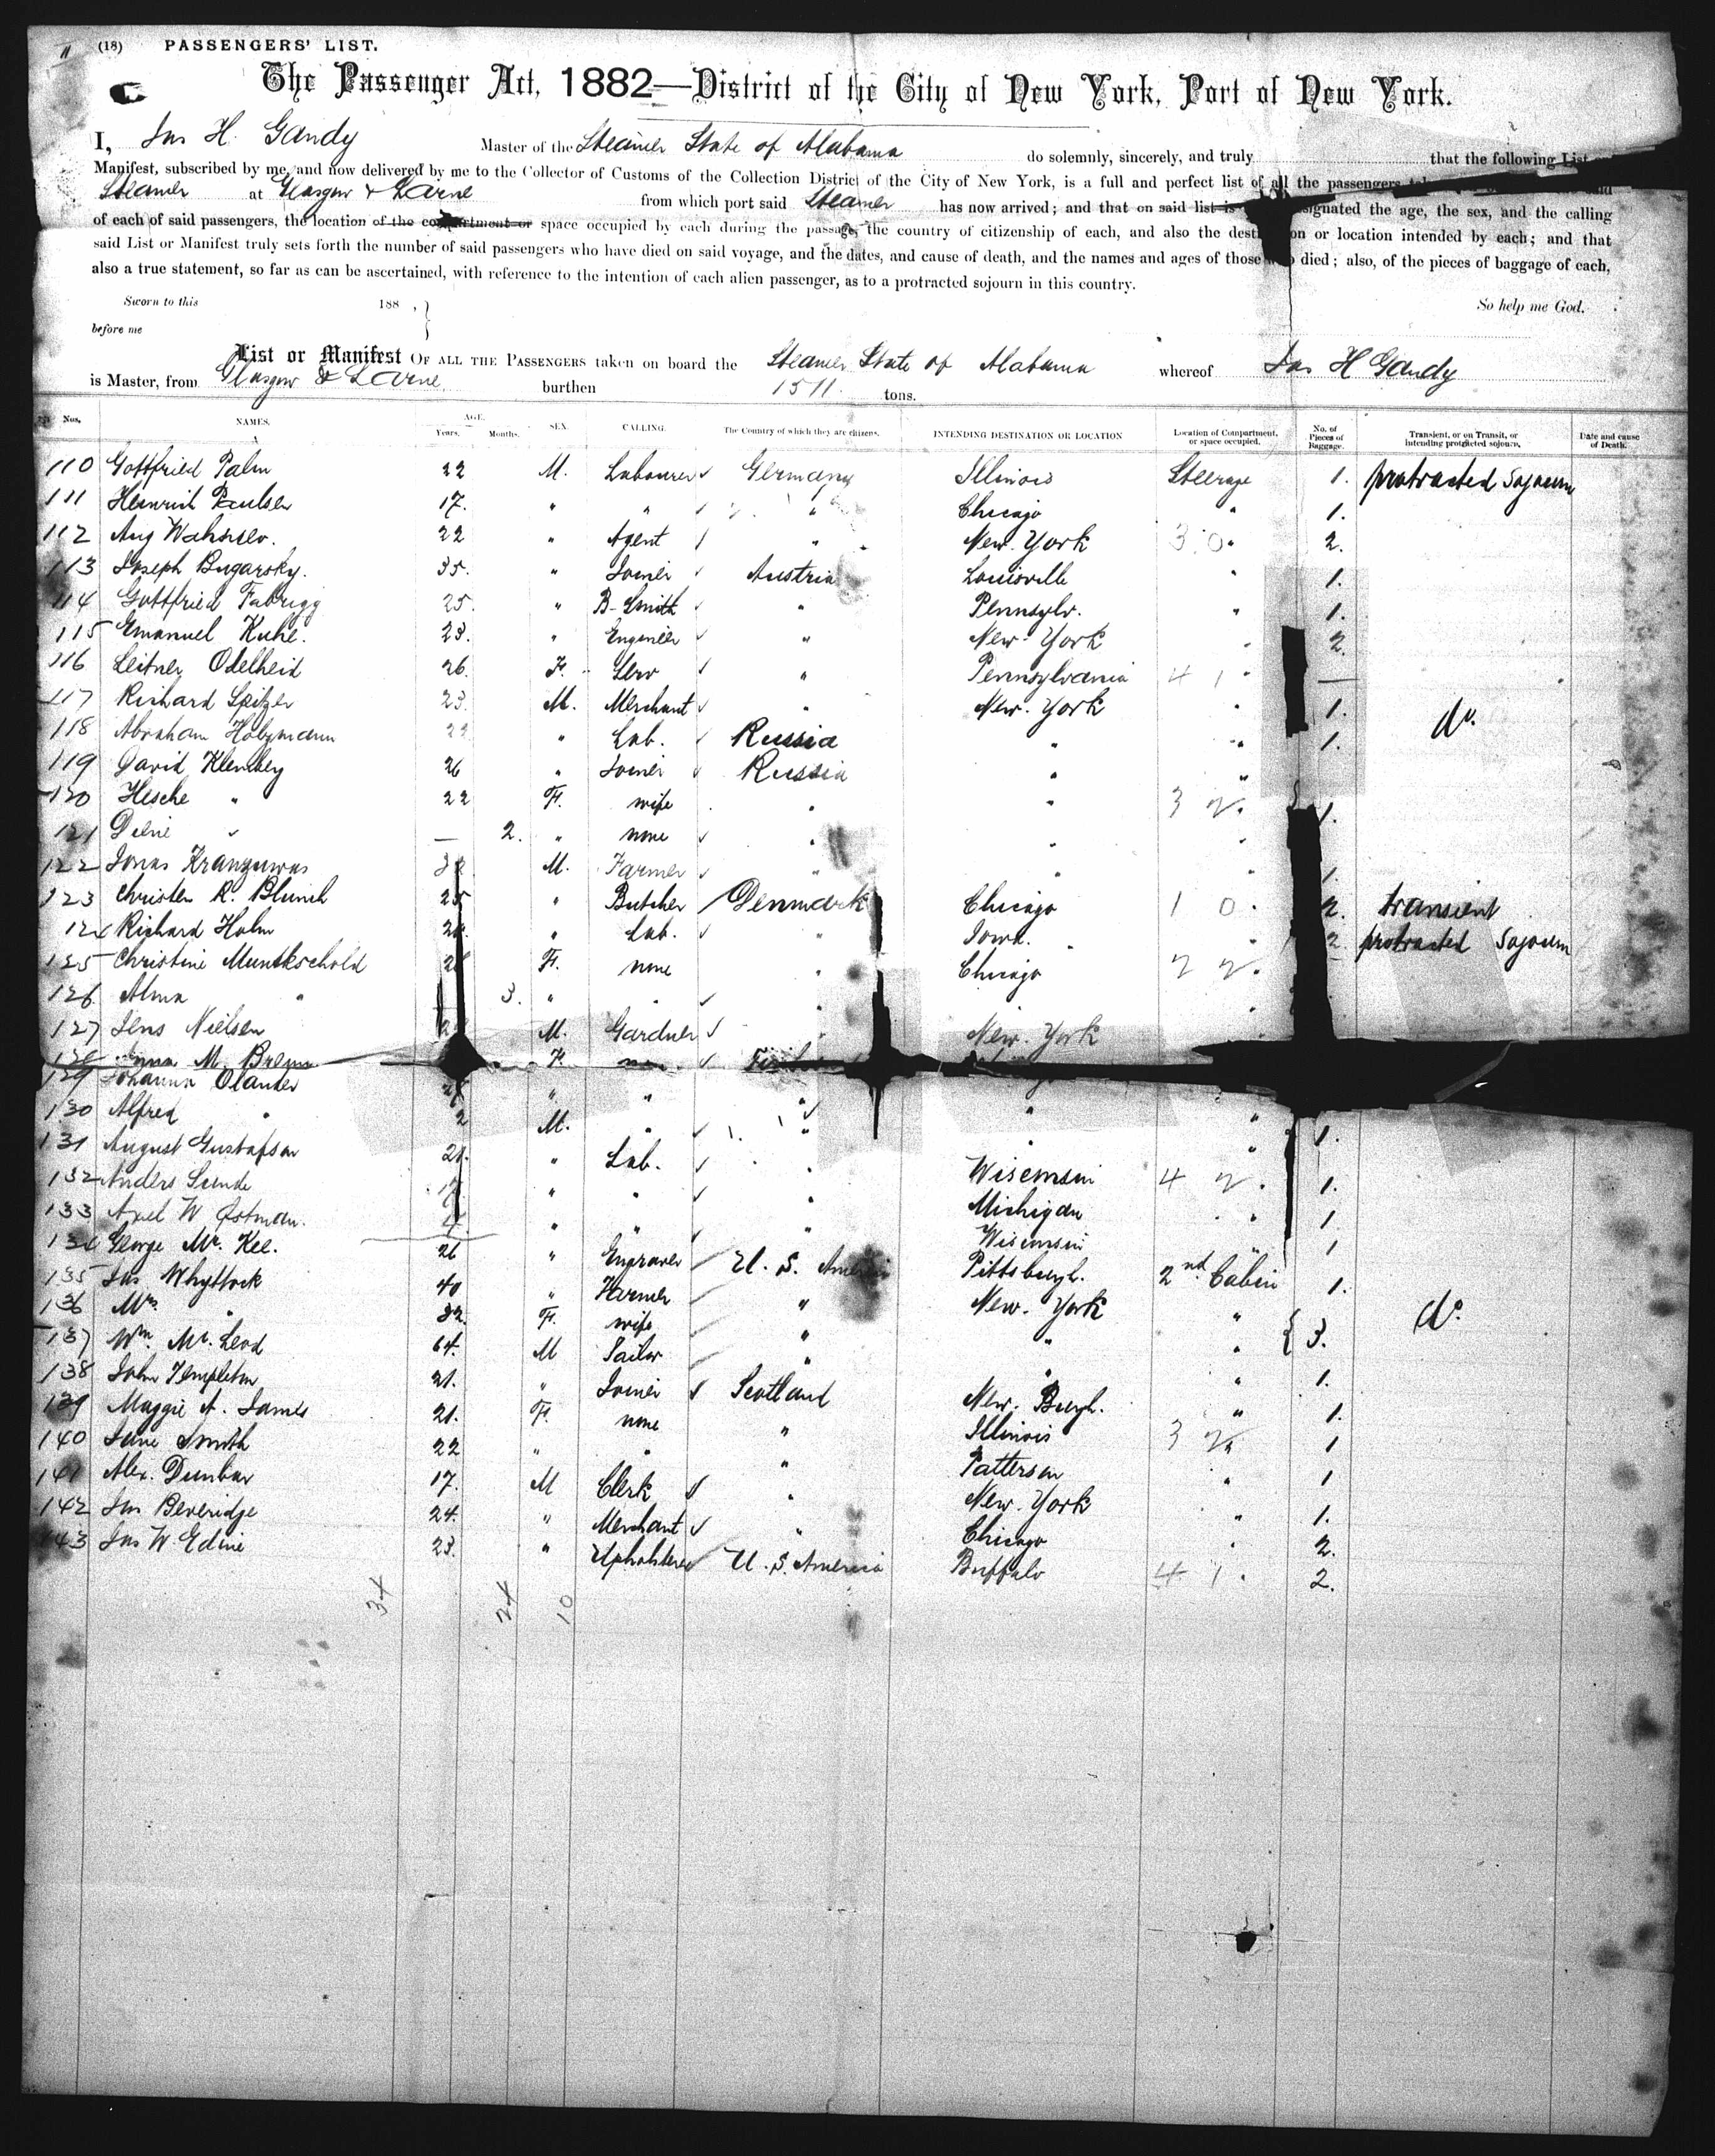 11 (18) PASSENGERS' LIST.
The Passenger Act, 1882—District of the City of New York, Port of New York.
I, Jas H. Gandy Master of the Steamer State of Alabama do solemnly, sincerely, and truly that the following List
Manifest, subscribed by me, and now delivered by me to the Collector of Customs of the Collection District of the City of New York, is a full and perfect list of all the passengers
Steamer at Glasgow & Larne from which port said Steamer has now arrived; and that on said list is designated the age, the sex, and the calling
of each of said passengers, the location of the compartment or space occupied by each during the passage, the country of citizenship of each, and also the destination or location intended by each; and that
said List or Manifest truly sets forth the number of said passengers who have died on said voyage, and the dates, and cause of death, and the names and ages of those who died; also, of the pieces of baggage of each,
also a true statement, so far as can be ascertained, with reference to the intention of each alien passenger, as to a protracted sojourn in this country.
Sworn to this 188 , So help me God.
before me
List or Manifest OF ALL THE PASSENGERS taken on board the Steamer State of Alabama whereof Jas H Gandy
is Master, from Glasgow & Larne burthen 1511 tons.
Nos. NAMES. AGE. Years. Months. SEX. CALLING. The Country of which they are citizens. INTENDING DESTINATION OR LOCATION Location of Compartment, or space occupied. No. of Pieces of Baggage. Transient, or on Transit, or intending protracted sojourn. Date and cause of Death.
110 Gottfried Palm 22 M. Labourer Germany Illinois Steerage 1. protracted Sojourn
111 Heinrich Paulsen 17. " " " Chicago " 1.
112 Aug 22 " Agent " New York 30 " 2.
113 Joseph Bugarsky. 35. " Joiner Austria Louisville " 1.
114 Gottfried Fabrigg 25. " B-Smith " Pennsylv. " 1.
115 Emanuel Kuhl. 23. " Engineer " New York " 2.
116 Leitner Odelheid 26. F. Serv " Pennsylvania 41 " —
117 Richard Spitzer 23. M. Merchant " New York " 1. do.
118 Abraham Holzmann 22 " Lab. Russia " " 1.
119 David Klemberg 26 " Joiner Russia " "
120 Hesche " 22 F. wife " " 32 " 1.
121 " — 2. " none " " "
122 Jonas 32 M. Farmer " " " 1.
123 Christen R. 25 " Butcher Denmark Chicago 10 " 2. transient
124 Richard Holm " Lab. " Iowa. " 2 protracted Sojourn
125 Christine Munkschold F. none " Chicago 22 "
126 Alma " 3. " " " "
127 Jens Nielsen M. Gardner " New York "
128 Anna M. F.
129 Johanna Olander " " " "
130 Alfred " 2 M. " " " " 1.
131 August Gustafson 21. " Lab. " " "
132 Anders Lunde 17 " " " Wisconsin 42 " 1.
133 Axel W Ostman. " " " Michigan " 1
Wisconsin " 1
134 George Mc. Kee. 26 " Engraver U. S. America Pittsburgh. 2nd Cabin 1.
135 Jas Whyttock 40 " Farmer " New York "
136 Mrs. " 32. F. wife " " " 3. do.
137 Wm. Mc. Leod 64. M Sailor " " " 1.
138 John Templeton 21. " Joiner Scotland New Burgh. " 1.
139 Maggie A. James 21. F. none " Illinois 32 1
140 Jane Smith 22 " " " Patterson " 1
141 Alex. Dunbar 17. M Clerk " New York " 1.
142 Jas Beveridge 24. " Merchant " Chicago " 2.
143 Jas W. Edine 23. " Upholsterer U. S. America Buffalo 41 " 2.
34 24 10